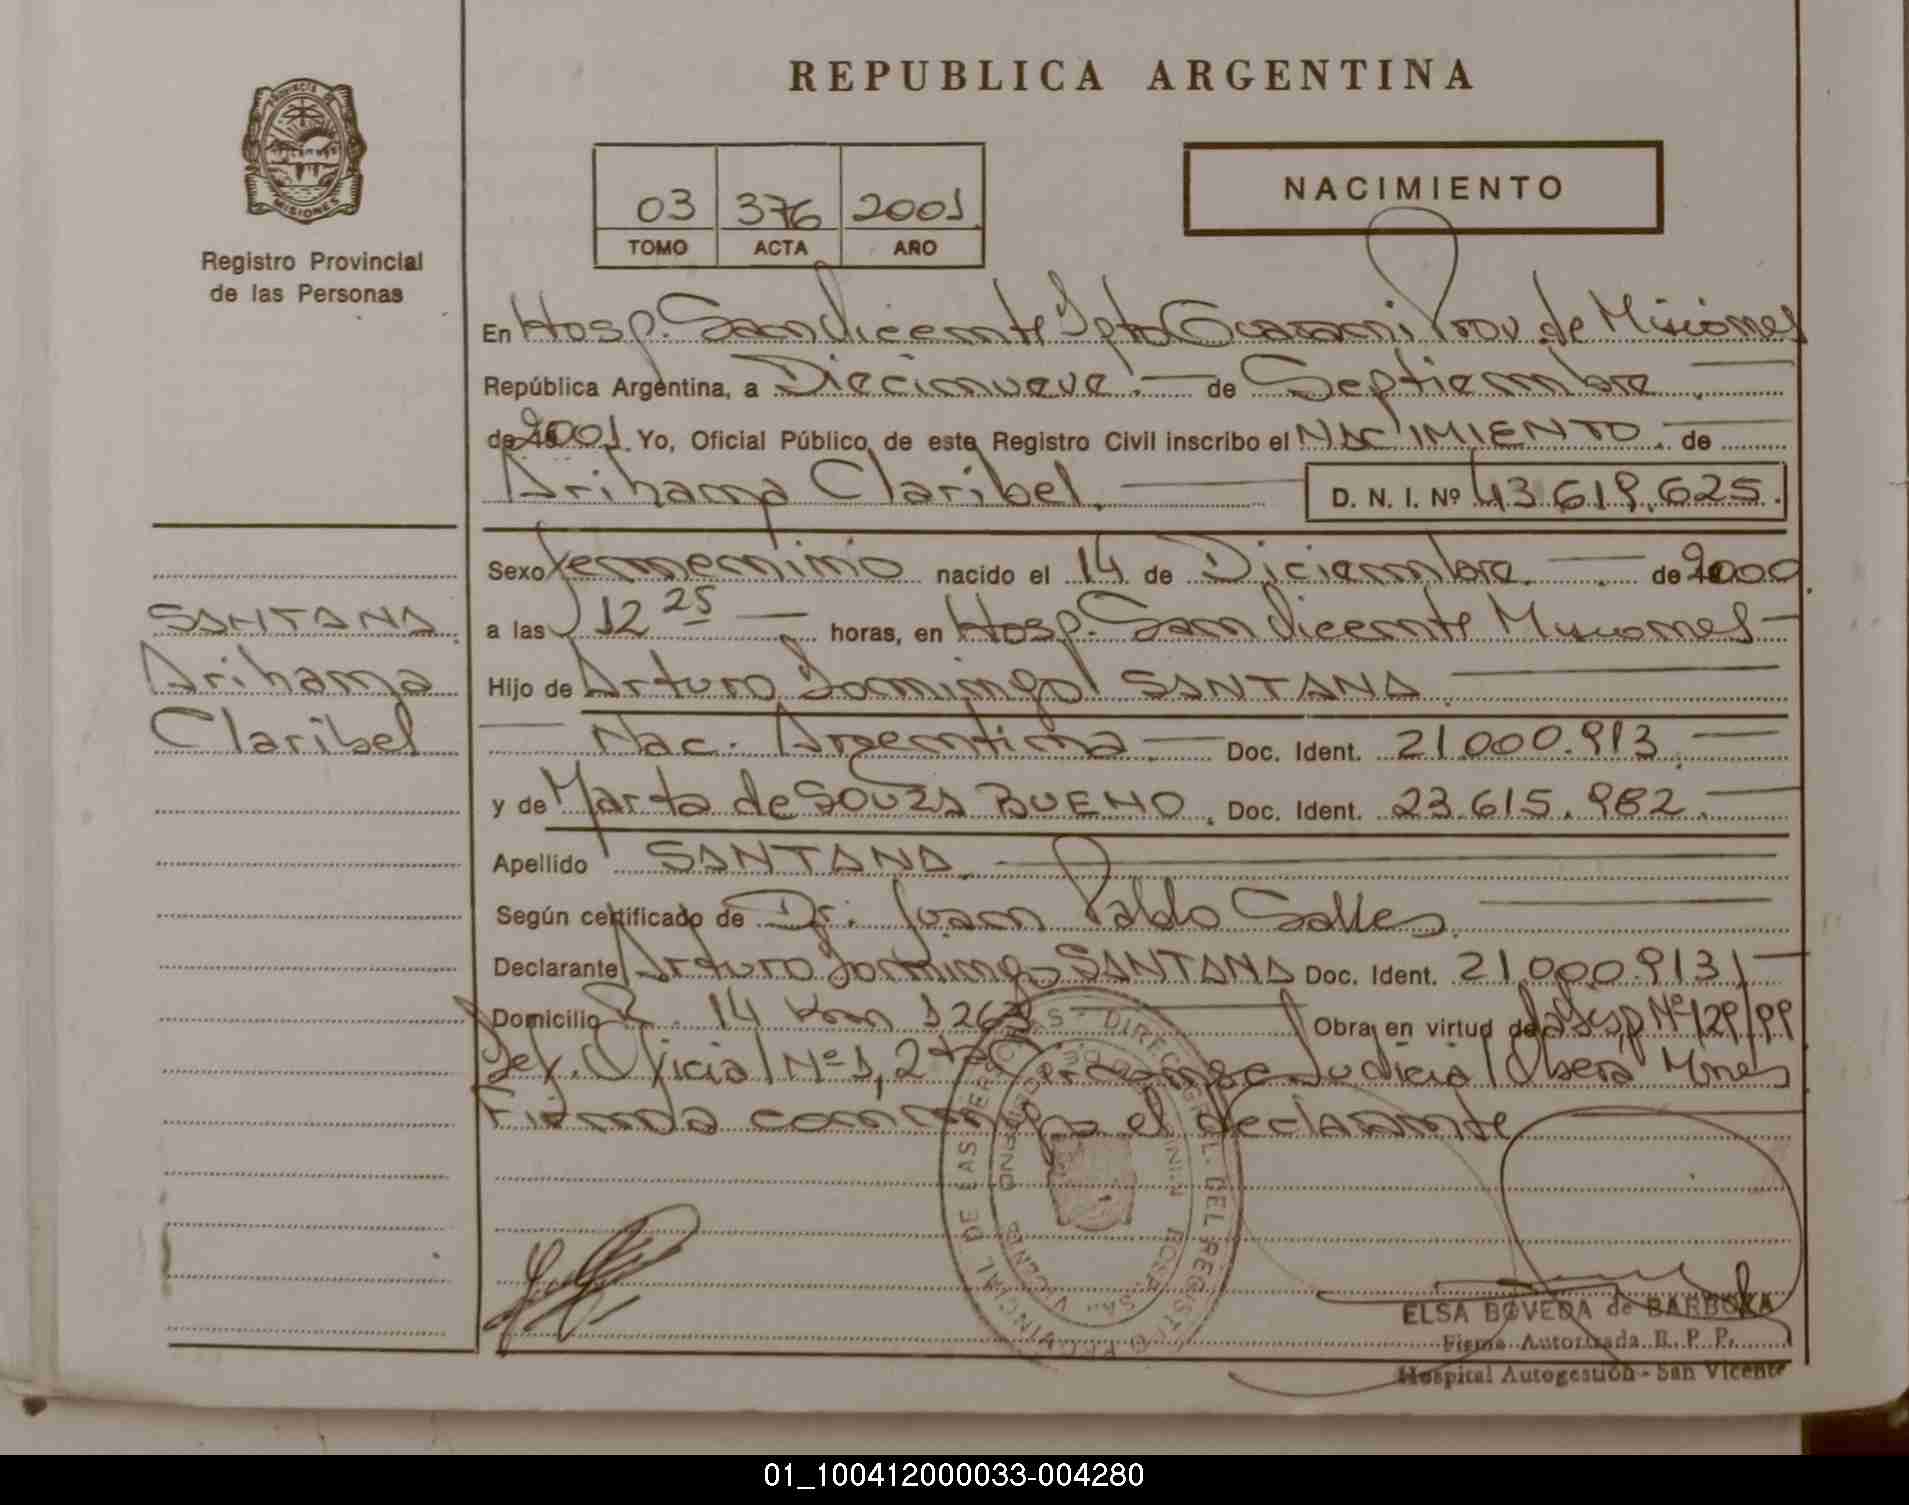 REPUBLICA ARGENTINA
PROVINCIA DE
MISIONES
Registro Provincial
de las Personas
03 376 2001
TOMO ACTA AÑO
NACIMIENTO
En Hosp. San Vicente Dpto Guarani Prov. de Misiones
República Argentina, a Diecinueve.- de Septiembre
de 2001 Yo, Oficial Público de este Registro Civil inscribo el NACIMIENTO de
Arihama Claribel. D. N. I. Nº 43.619.625.
Sexo femenino nacido el 14 de Diciembre de 2000
a las 12 25 horas, en Hosp. San Vicente Misiones
SANTANA
Arihama
Claribel
Hijo de Arturo Domingo SANTANA
Nac. Argentina Doc. Ident. 21.000.913
y de Marta de SOUZA BUENO. Doc. Ident. 23.615.982
Apellido SANTANA
Según certificado de Dr. Juan Pablo Salles
Declarante Arturo Domingo SANTANA Doc. Ident. 21.000.913
Domicilio R. 14 Km 1262 Obra en virtud de Nº 129/99
Def. Oficial Nº 1, 2da Judicial Oberá Mnes
Firma conmigo el declarante
ELSA BOVEDA de BARBOZA
Firma Autorizada R. P. P.
Hospital Autogestión - San Vicente
01_100412000033-004280